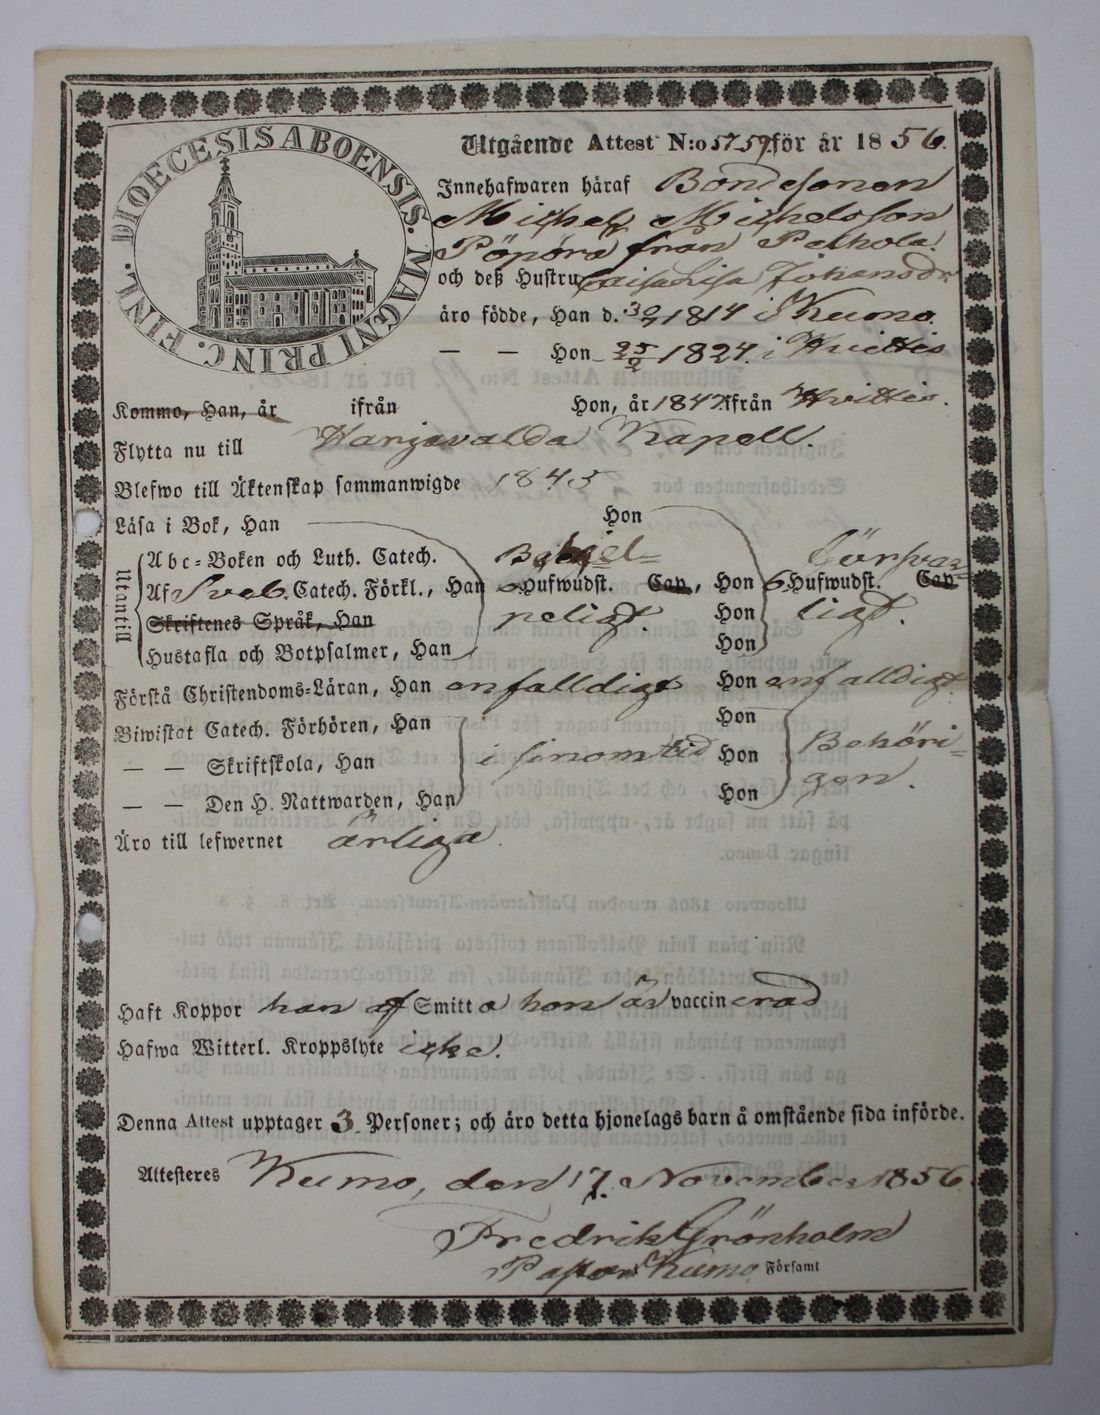 DIOECESIS ABOENSIS. MAGNI PRINC. FINL.
Utgående Attest N:o 5759 för år 1856.
Innehafwaren häraf Bondesonen
Michel Michelsson
Pöpörä från Pelhola
och deß Hustru Caisa Lisa Johansdr
äro födde, Han d. 1814 i Kumo.
— — Hon 25/2 1824. i Hvittis
Kommo, Han, år ifrån Hon, år 1847 ifrån Hvittis.
Flytta nu till Harjavalda Kapell.
Blefwo till Äktenskap sammanwigde 1845
Läsa i Bok, Han Hon
Utantill
Abc-Boken och Luth. Catech. Begjel= försvar=
Af Sveb. Catech. Förkl., Han 6 Hufwudst. Cap., Hon 6 Hufwudst. Cap
Skriftenes Språk, Han peligt. Hon ligt.
Hustafla och Botpsalmer, Han Hon
Förstå Christendoms-Läran, Han enfalldigt Hon enfalldigt
Biwistat Catech. Förhören, Han Hon
— — Skriftskola, Han i sinom tid Hon Behöri=
— — Den H. Nattwarden, Han Hon gen.
Äro till lefwernet ärliga.
Haft Koppor han af Smitta hon är vaccinerad
Hafwa Witterl. Kroppslyte icke.
Denna Attest upptager 3 Personer; och äro detta hjonelags barn å omstående sida införde.
Attesteres Kumo, den 17. November 1856.
Fredrik Grönholm
Pastor i Kumo Församl